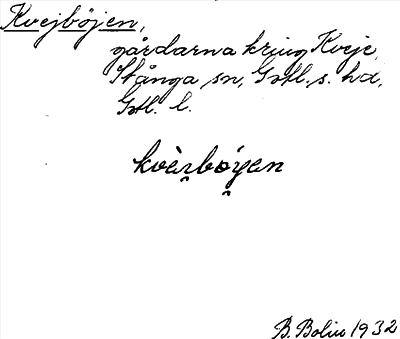 Kvejböjen,
gårdarna kring Kveje,
Stånga sn, Gotl. s. hd,
Gotl. l.
kvèrbo̤yen
B. Bolin 1932